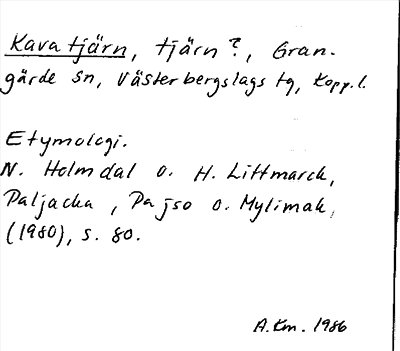 Kava tjärn, tjärn?, Gran-
gärde sn, Västerbergslags tg, Kopp. l.
Etymologi.
N. Holmdal o. H. Littmarck,
Paljacka, Pajso o. Mylimak,
(1980), s. 80.
A.Km. 1986